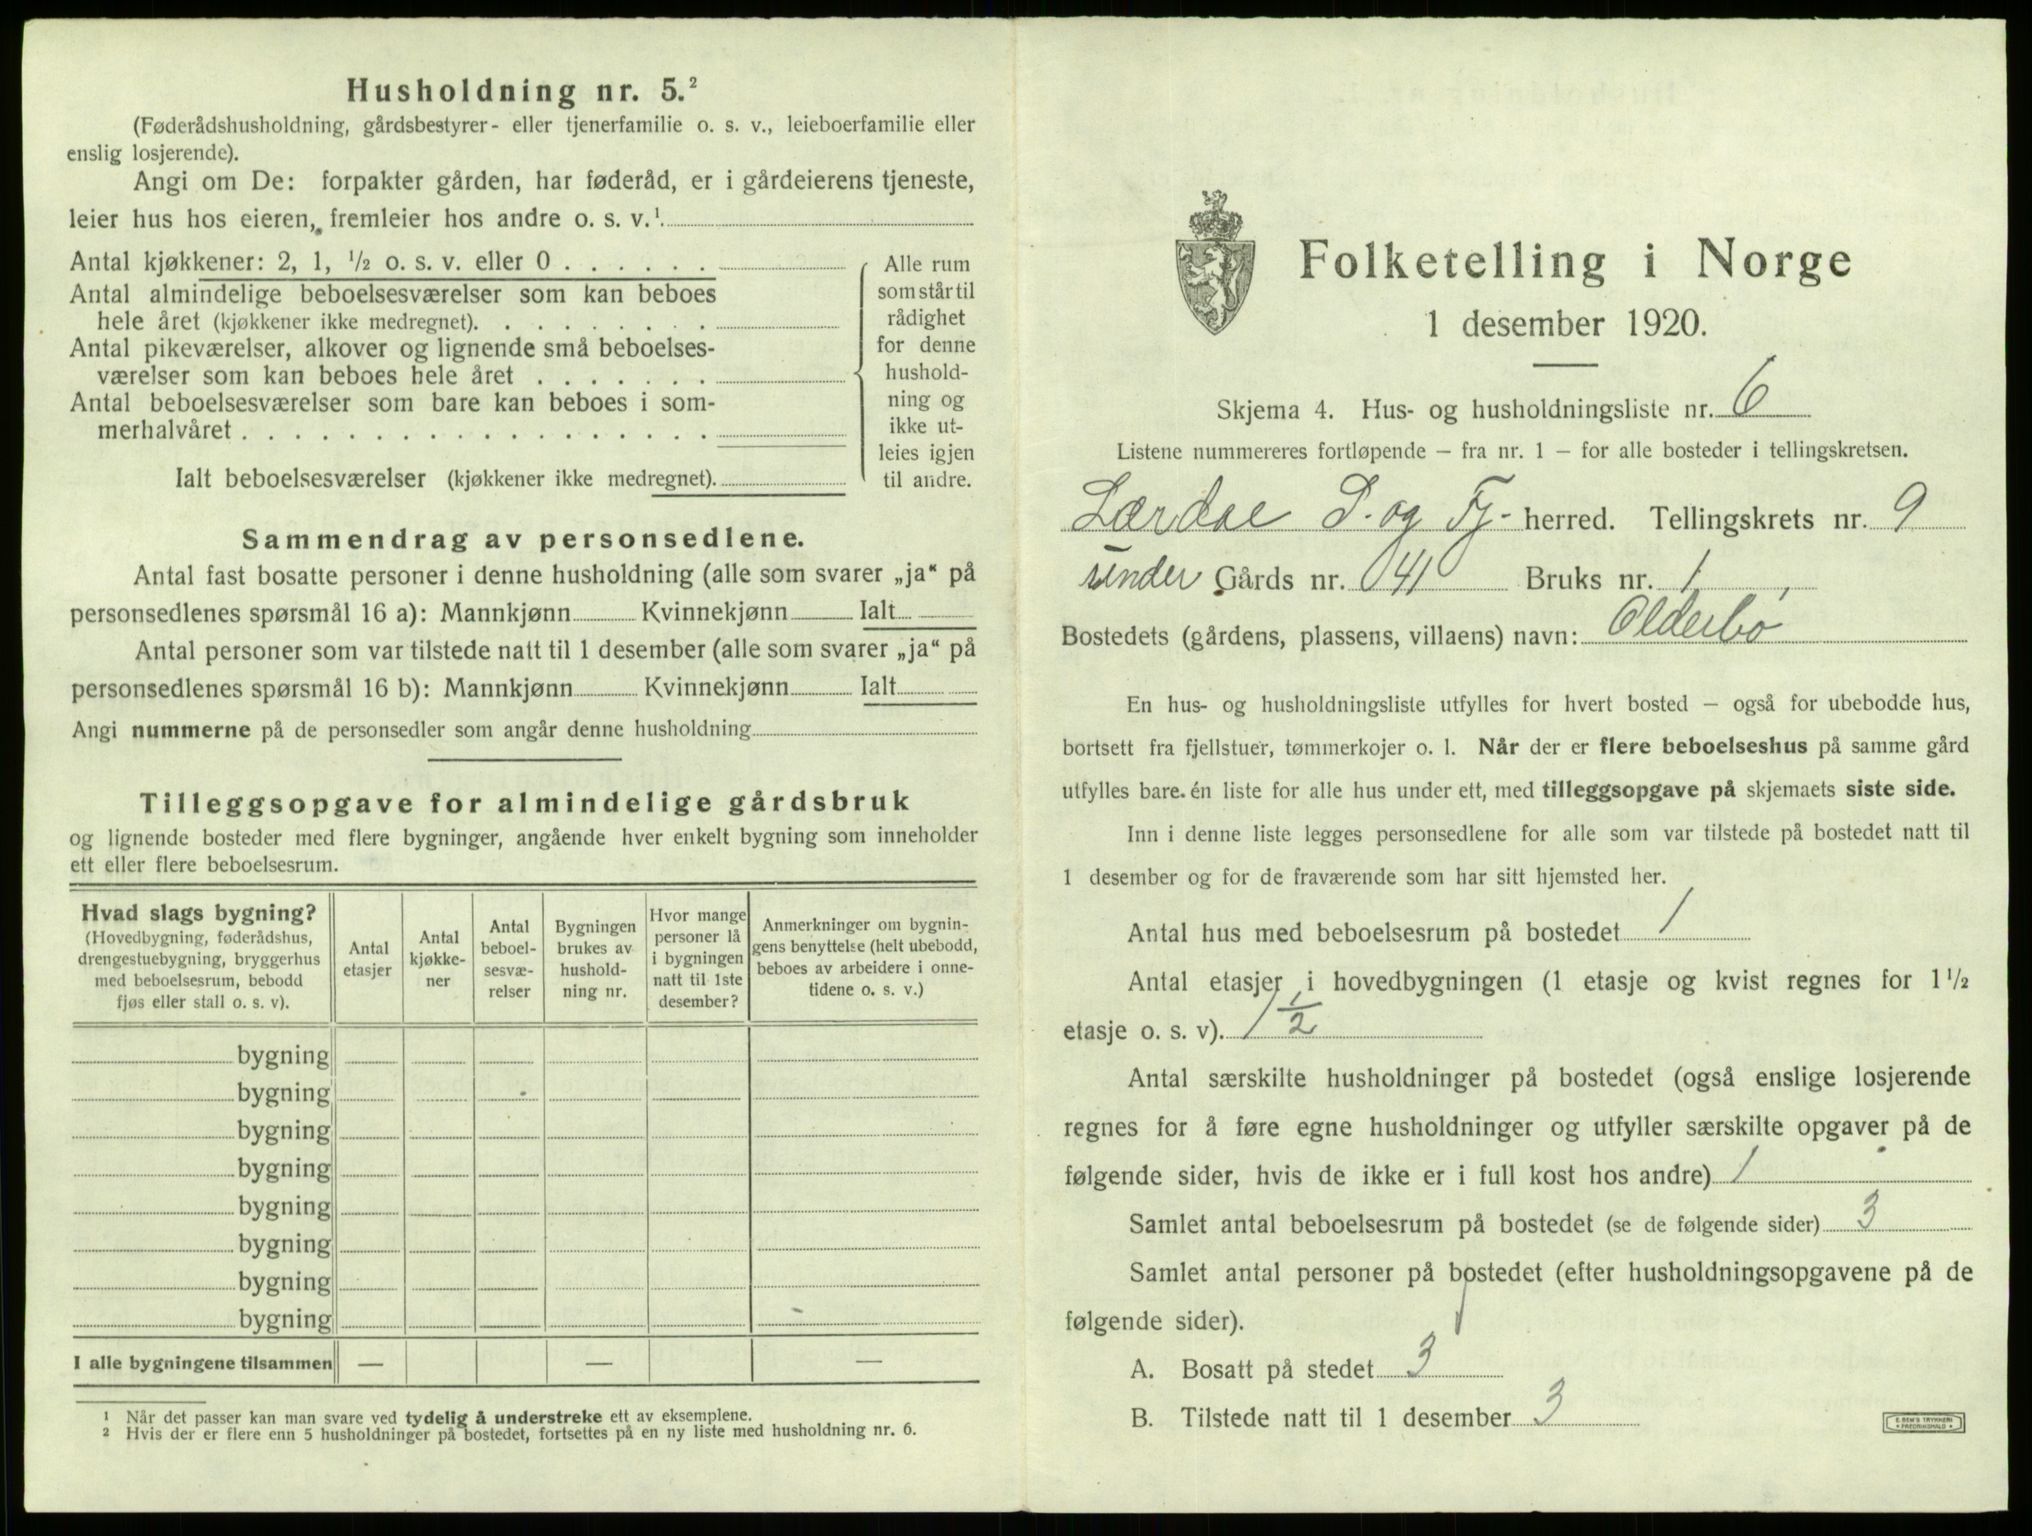 Husholdning nr. 5.²
(Føderådshusholdning, gårdsbestyrer- eller tjenerfamilie o. s. v., leieboerfamilie eller
enslig losjerende).
Angi om De: forpakter gården, har føderåd, er i gårdeierens tjeneste,
leier hus hos eieren, fremleier hos andre o. s. v.¹
Antal kjøkkener: 2, 1, ½ o. s. v. eller 0 . . . . . .
Antal almindelige beboelsesværelser som kan beboes
hele året (kjøkkener ikke medregnet). . . . . . . . .
Antal pikeværelser, alkover og lignende små beboelses-
værelser som kan beboes hele året . . . . . . .
Antal beboelsesværelser som bare kan beboes i som-
merhalvåret . . . . . . . . . . . . . . . . . .
Ialt beboelsesværelser (kjøkkener ikke medregnet).
Alle rum
som står til
rådighet
for denne
hushold-
ning og
ikke ut-
leies igjen
til andre.
Sammendrag av personsedlene.
Antal fast bosatte personer i denne husholdning (alle som svarer „ja“ på
personsedlenes spørsmål 16 a): Mannkjønn Kvinnekjønn Ialt
Antal personer som var tilstede natt til 1 desember (alle som svarer „ja“ på
personsedlenes spørsmål 16 b): Mannkjønn Kvinnekjønn Ialt
Angi nummerne på de personsedler som angår denne husholdning
Tilleggsopgave for almindelige gårdsbruk
og lignende bosteder med flere bygninger, angående hver enkelt bygning som inneholder
ett eller flere beboelsesrum.
Hvad slags bygning?
(Hovedbygning, føderådshus,
drengestuebygning, bryggerhus
med beboelsesrum, bebodd
fjøs eller stall o. s. v).
Antal
etasjer
Antal
kjøkke-
ner
Antal
beboel-
sesvæ-
relser
Bygningen
brukes av
hushold-
ning nr.
Hvor mange
personer lå
i bygningen
natt til 1ste
desember?
Anmerkninger om bygnin-
gens benyttelse (helt ubebodd,
beboes av arbeidere i onne-
tidene o. s. v.)
bygning
bygning
bygning
bygning
bygning
bygning
bygning
bygning
I alle bygningene tilsammen — — —
¹ Når det passer kan man svare ved tydelig å understreke ett av eksemplene.
² Hvis der er flere enn 5 husholdninger på bostedet, fortsettes på en ny liste med husholdning nr. 6.
Folketelling i Norge
1 desember 1920.
Skjema 4. Hus- og husholdningsliste nr. 6
Listene nummereres fortløpende — fra nr. 1 — for alle bosteder i tellingskretsen.
Lærdal S. og Fj. herred. Tellingskrets nr. 9
under Gårds nr. 41 Bruks nr. 1,
Bostedets (gårdens, plassens, villaens) navn: Olderbø
En hus- og husholdningsliste utfylles for hvert bosted — også for ubebodde hus,
bortsett fra fjellstuer, tømmerkojer o. l. Når der er flere beboelseshus på samme gård
utfylles bare én liste for alle hus under ett, med tilleggsopgave på skjemaets siste side.
Inn i denne liste legges personsedlene for alle som var tilstede på bostedet natt til
1 desember og for de fraværende som har sitt hjemsted her.
Antal hus med beboelsesrum på bostedet 1
Antal etasjer i hovedbygningen (1 etasje og kvist regnes for 1½
etasje o. s. v). 1 ½
Antal særskilte husholdninger på bostedet (også enslige losjerende
regnes for å føre egne husholdninger og utfyller særskilte opgaver på de
følgende sider, hvis de ikke er i full kost hos andre) 1
Samlet antal beboelsesrum på bostedet (se de følgende sider) 3
Samlet antal personer på bostedet (efter husholdningsopgavene på de
følgende sider).
A. Bosatt på stedet 3
B. Tilstede natt til 1 desember 3
E. SEM'S TRYKKERI
FREDRIKSHALD